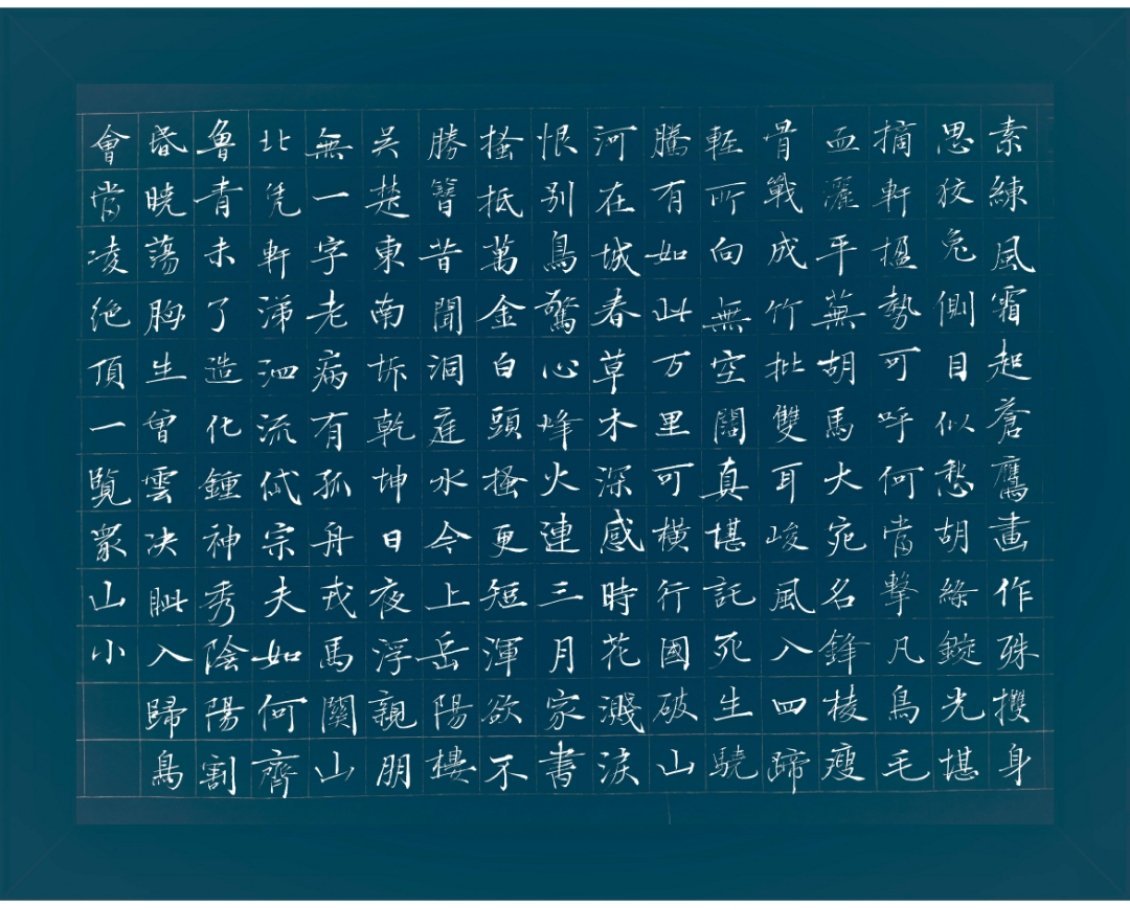 素練風霜起蒼鷹畫作殊㩳身
思狡兔側目似愁胡絛鏇光堪
摘軒楹勢可呼何當擊凡鳥毛
血灑平蕪胡馬大宛名鋒棱瘦
骨戰成竹批雙耳峻風入四蹄
輕所向無空闊真堪託死生驍
騰有如此万里可橫行國破山
河在城春草木深感時花濺淚
恨別鳥驚心烽火連三月家書
搔抵萬金白頭搔更短渾欲不
勝簪昔聞洞庭水今上岳陽樓
吳楚東南坼乾坤日夜浮親朋
無一字老病有孤舟戎馬關山
北凭軒涕泗流岱宗夫如何齊
魯青未了造化鍾神秀陰陽割
昏曉蕩胸生曾雲决眦入歸鳥
會當凌絕頂一覽眾山小